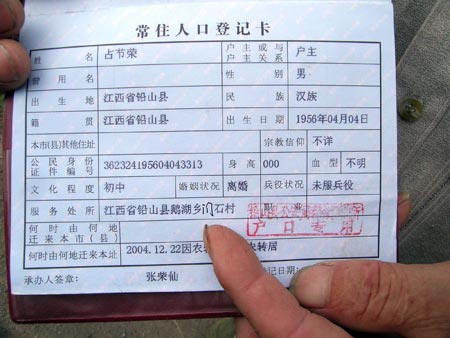 常住人口登记卡
姓名 占节荣 户主或与户主关系 户主
曾用名 性别 男
出生地 江西省铅山县 民族 汉族
籍贯 江西省铅山县 出生日期 1956年04月04日
本市(县)其他住址 宗教信仰 不详
公民身份证件编号 362324195604043313 身高 000 血型 不明
文化程度 初中 婚姻状况 离婚 兵役状况 未服兵役
服务处所 江西省铅山县鹅湖乡门石村
何时由何地迁来本市(县) 户口专用
何时由何地迁来本址 2004.12.22因农 农转居
承办人签章: 张荣仙 记日期: